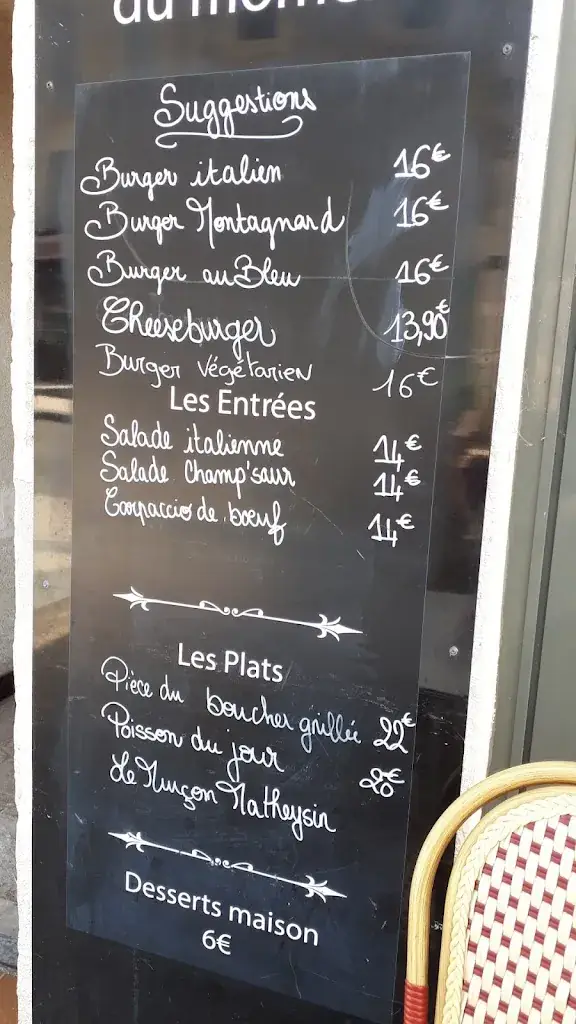 du mome
Suggestions
Burger italien 16€
Burger Montagnard 16€
Burger au Bleu 16€
Cheeseburger 13,90€
Burger végétarien 16€
Les Entrées
Salade italienne 14€
Salade Champ'saur 14€
Carpaccio de boeuf 14€
Les Plats
Pièce du boucher grillée 22€
Poisson du jour 20€
Le Murçon Matheysin
Desserts maison
6€